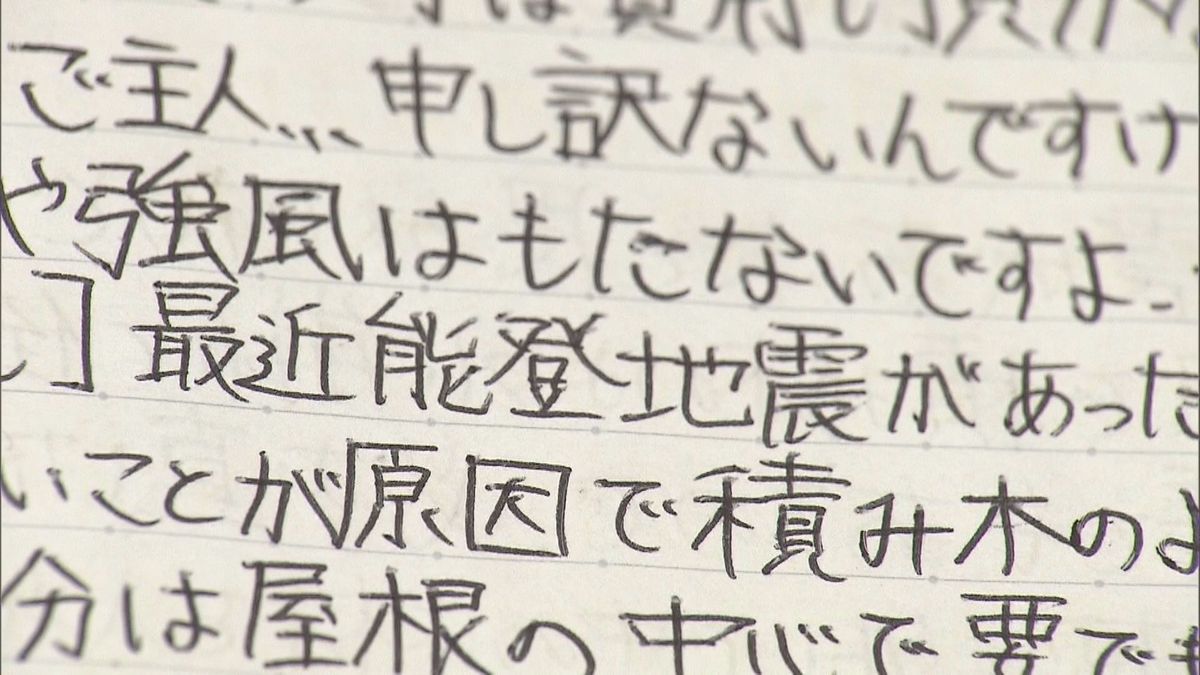 ご主人… 申し訳ないんですけ
や強風はもたないですよ
」最近能登地震があった
いことが原因で積み木のよ
分は屋根の中心で要でも